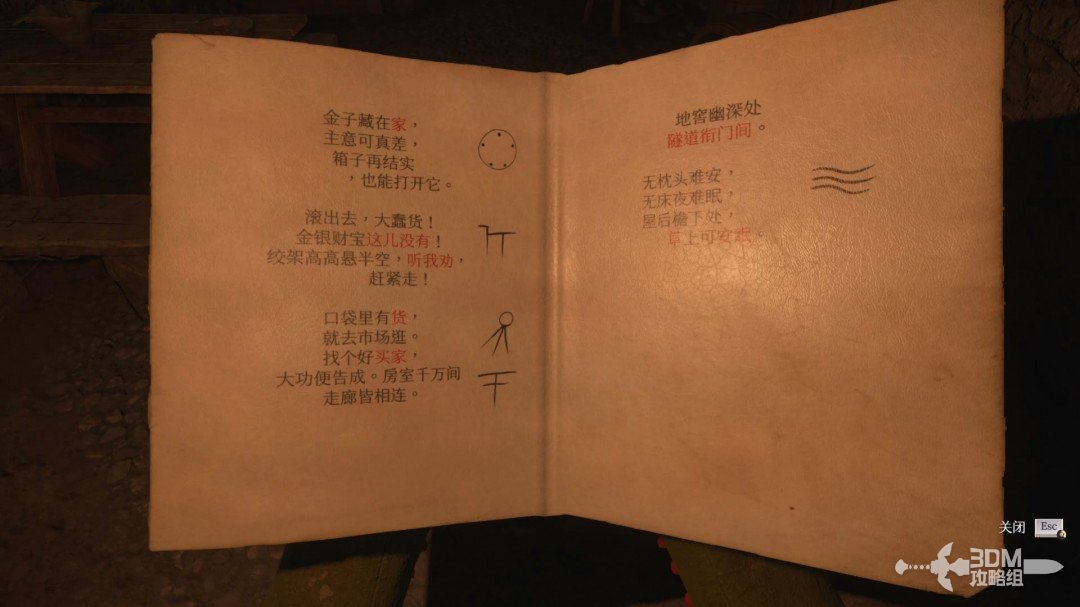 金子藏在家，
主意可真差，
箱子再结实
，也能打开它。
滚出去，大蠢货！
金银财宝这儿没有！
绞架高高悬半空，听我劝，
赶紧走！
口袋里有货，
就去市场逛。
找个好买家，
大功便告成。房室千万间
走廊皆相连。
地窖幽深处
隧道衔门间。
无枕头难安，
无床夜难眠，
屋后檐下处，
草上可安眠。
关闭 Esc
3DM
攻略组